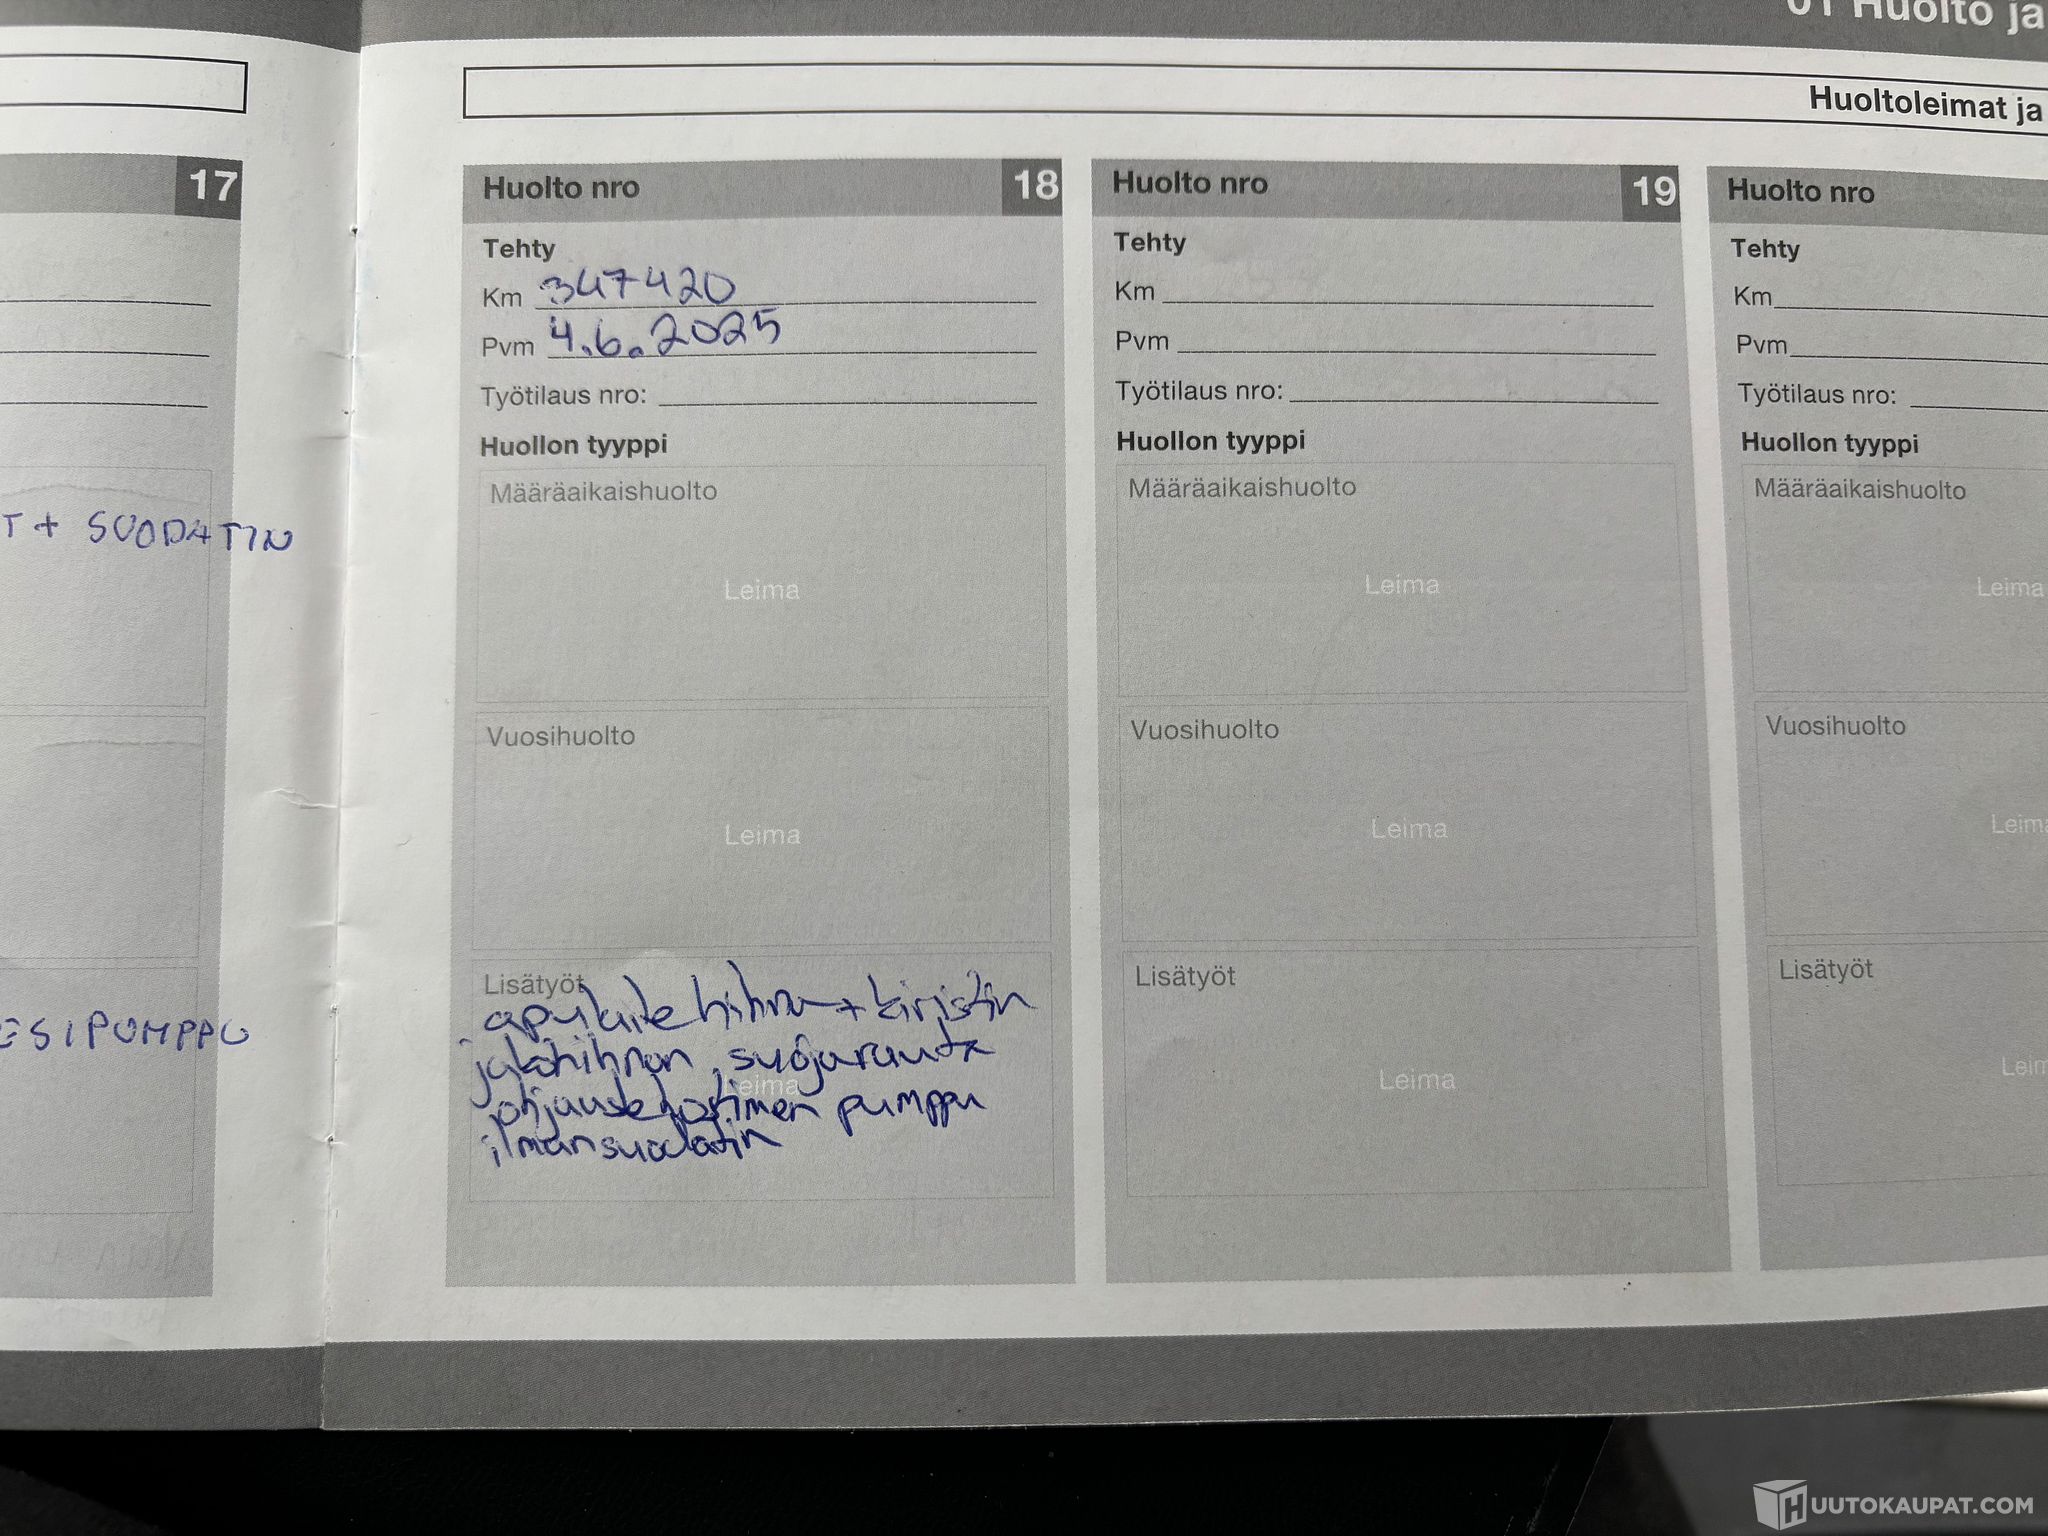 01 Huolto ja
Huoltoleimat ja
17
T + SUODATIN
ESIPUMPPU
Huolto nro 18
Tehty
Km 347420
Pvm 4.6.2025
Työtilaus nro:
Huollon tyyppi
Määräaikaishuolto
Leima
Vuosihuolto
Leima
Lisätyöt
apulaite hihna + kiristin
jakohihnan suojarauta
Leima
ohjaustehostimen pumppu
ilmansuodatin
Huolto nro 19
Tehty
Km
Pvm
Työtilaus nro:
Huollon tyyppi
Määräaikaishuolto
Leima
Vuosihuolto
Leima
Lisätyöt
Leima
Huolto nro
Tehty
Km
Pvm
Työtilaus nro:
Huollon tyyppi
Määräaikaishuolto
Leima
Vuosihuolto
Leima
Lisätyöt
Leim
HUUTOKAUPAT.COM